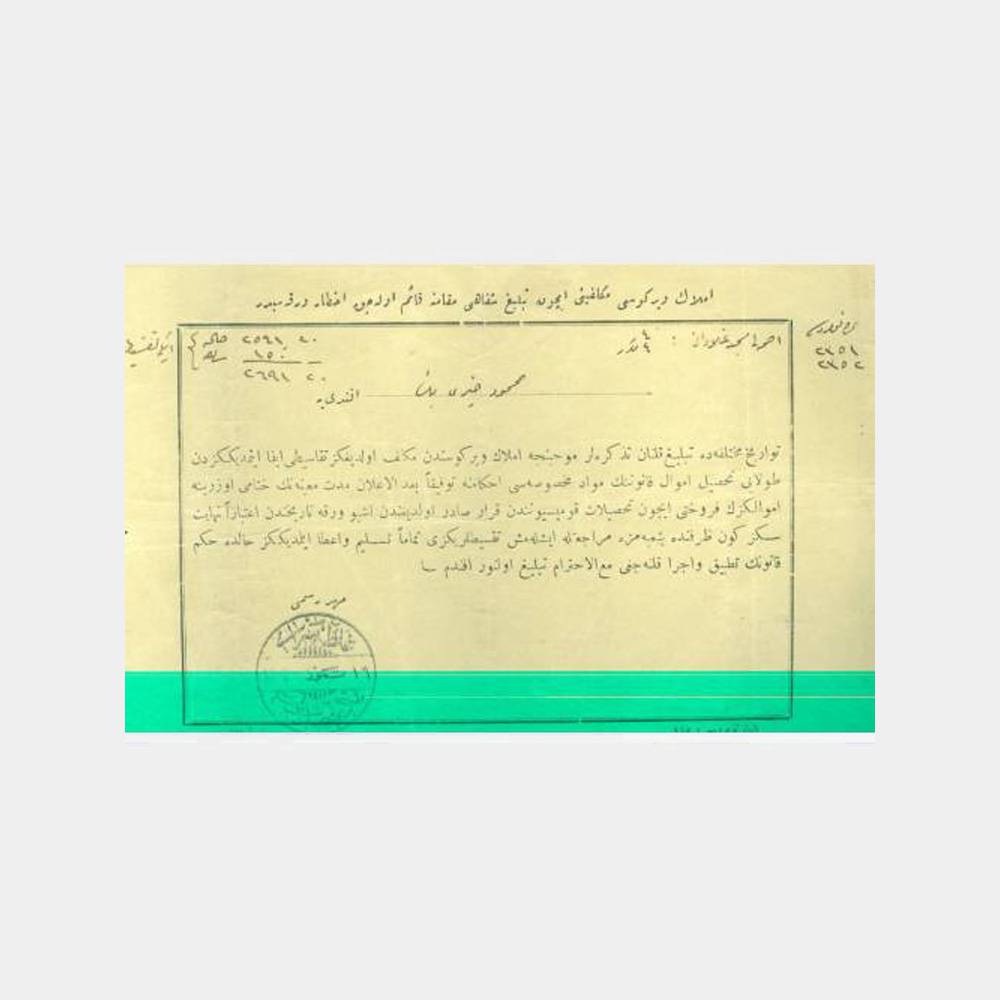 املاك ويركوسی مكلفينی ايچون تبليغ شفاهی مقامنه قائم اوله‌جق اخطار ورقه‌سيدر
٢٣٥١
٢٣٥٢
٢٥٤١ ٢٠
١٥٠
٢٦٩١ ٢٠
محمود خيری پاشا افندی‌يه
تواريخ مختلفه‌ده تبليغ قلنان تذكره‌لر موجبنجه املاك ويركوسندن مكلف اولديغكز تقاسيطی ايفا ايتمديككزدن
طولايی تحصيل اموال قانوننك مواد مخصوصه‌سی احكامنه توفيقاً بعد الاعلان مدت معينه‌نك ختامی اوزرينه
اموالكزك فروختی ايچون تحصيلات قوميسيونندن قرار صادر اولديغندن اشبو ورقه تاريخندن اعتباراً نهايت
سكز كون ظرفنده شعبه‌مزه مراجعتله ايشله‌مش تقسيطلريكزی تماماً تسليم واعطا ايتمديككز حالده حكم
قانونك تطبيق واجرا قلنه‌جغی مع الاحترام تبليغ اولنور افندم
مهر رسمی